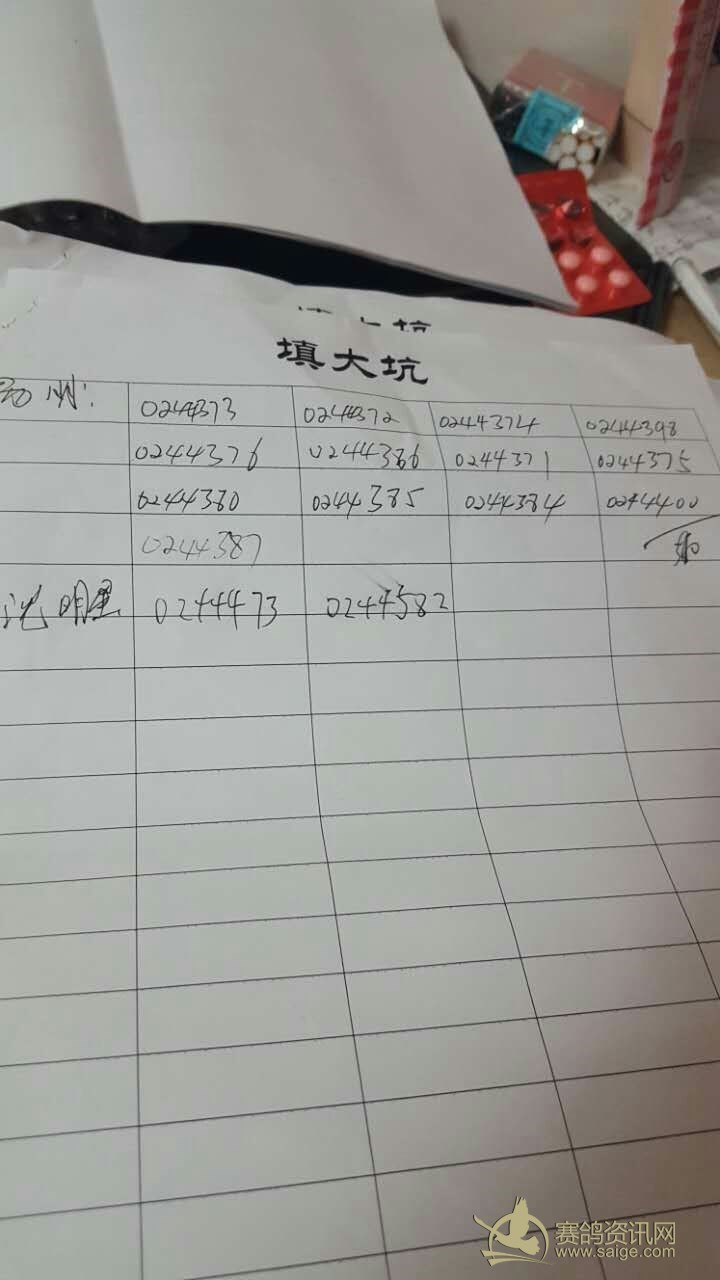 填大坑
填大坑
州: 0244373 0244372 0244374 0244398
0244376 0244386 0244371 0244375
0244380 0244385 0244384 0244400
0244387
沈明星 0244473 0244582
赛鸽资讯网
www.saige.com